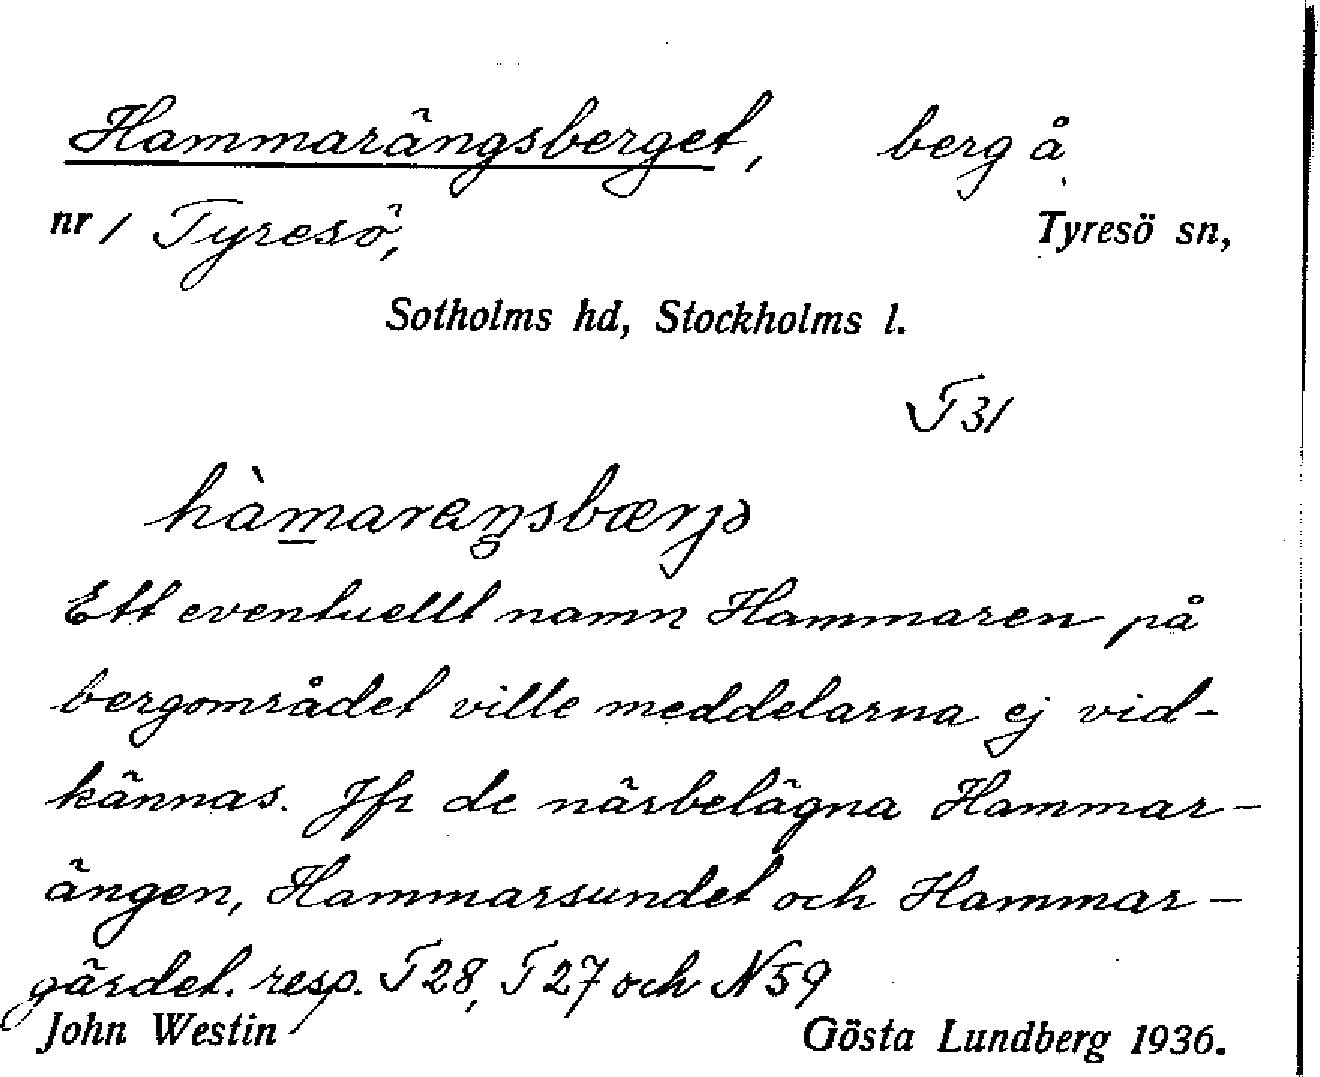 Hammarängsberget, berg å
nr 1 Tyresö, Tyresö sn,
Sotholms hd, Stockholms l.
T 31
hàmaraŋsbærjə
Ett eventuellt namn Hammaren på
bergområdet ville meddelarna ej vid-
kännas. Jfr de närbelägna Hammar-
ängen, Hammarsundet och Hammar-
gärdet. resp. T 28, T 27 och N 59
John Westin Gösta Lundberg 1936.